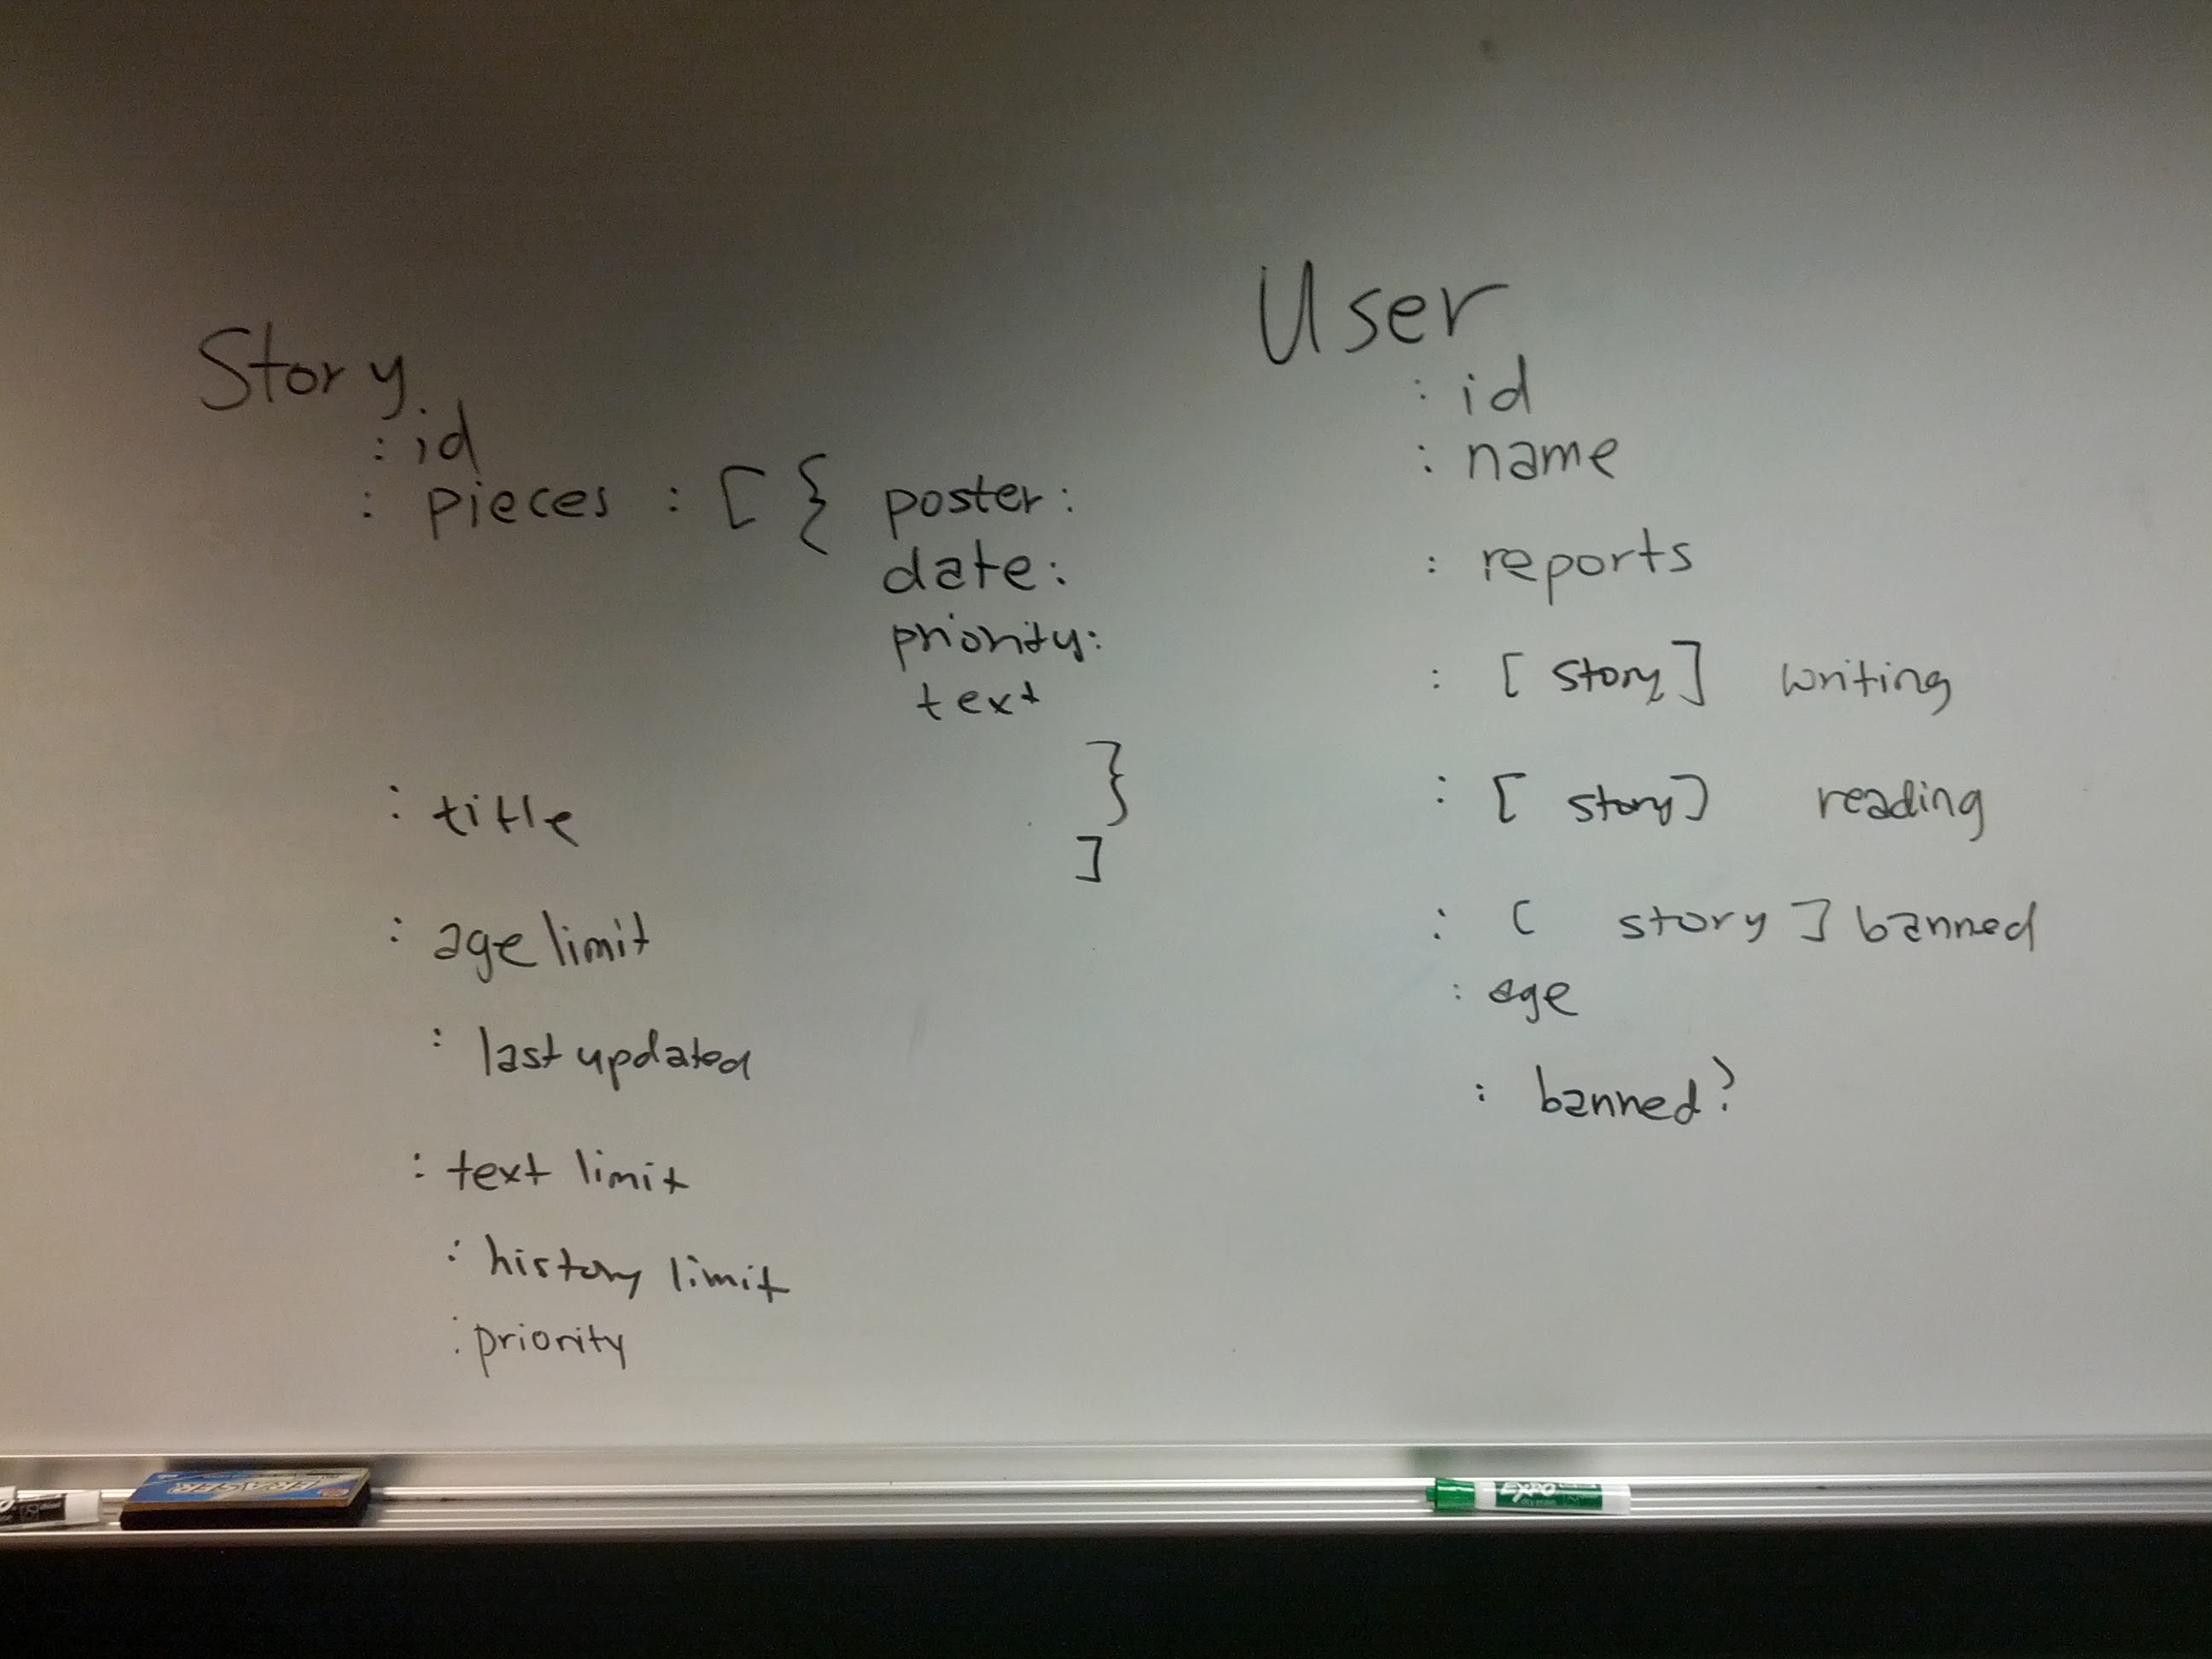 Story
: id
: pieces : [ { poster :
date :
priority :
text
}
]
: title
: age limit
: last updated
: text limit
: history limit
: priority
User
: id
: name
: reports
: [ story ] writing
: [ story ] reading
: [ story ] banned
: age
: banned?
ERASER
EXPO